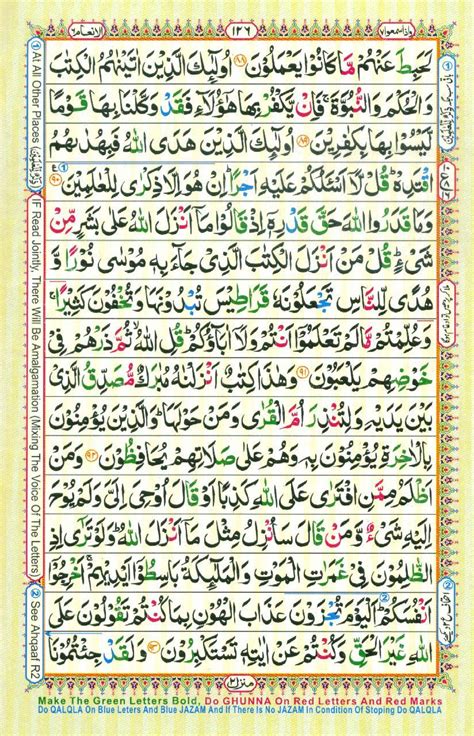 وإذا سمعوا ٧
١٢٦
الانعام ٦
لَحَبِطَ عَنْهُمْ مَّا كَانُوْا يَعْمَلُوْنَ ۝٨٨ اُولٰٓئِكَ الَّذِيْنَ اٰتَيْنٰهُمُ الْكِتٰبَ
وَالْحُكْمَ وَالنُّبُوَّةَ ۚ فَاِنْ يَّكْفُرْ بِهَا هٰٓؤُلَآءِ فَقَدْ وَكَّلْنَا بِهَا قَوْمًا
لَّيْسُوْا بِهَا بِكٰفِرِيْنَ ۝٨٩ اُولٰٓئِكَ الَّذِيْنَ هَدَى اللّٰهُ فَبِهُدٰىهُمُ
اقْتَدِهْ ؕ قُلْ لَّآ اَسْـَٔلُكُمْ عَلَيْهِ اَجْرًا ؕ اِنْ هُوَ اِلَّا ذِكْرٰى لِلْعٰلَمِيْنَ ۝٩٠
وَمَا قَدَرُوا اللّٰهَ حَقَّ قَدْرِهٖٓ اِذْ قَالُوْا مَآ اَنْزَلَ اللّٰهُ عَلٰى بَشَرٍ مِّنْ
شَيْءٍ ؕ قُلْ مَنْ اَنْزَلَ الْكِتٰبَ الَّذِيْ جَآءَ بِهٖ مُوْسٰى نُوْرًا وَّ
هُدًى لِّلنَّاسِ تَجْعَلُوْنَهٗ قَرَاطِيْسَ تُبْدُوْنَهَا وَتُخْفُوْنَ كَثِيْرًا ۚ
وَعُلِّمْتُمْ مَّا لَمْ تَعْلَمُوْٓا اَنْتُمْ وَلَآ اٰبَآؤُكُمْ ؕ قُلِ اللّٰهُ ۙ ثُمَّ ذَرْهُمْ فِيْ
خَوْضِهِمْ يَلْعَبُوْنَ ۝٩١ وَهٰذَا كِتٰبٌ اَنْزَلْنٰهُ مُبٰرَكٌ مُّصَدِّقُ الَّذِيْ
بَيْنَ يَدَيْهِ وَلِتُنْذِرَ اُمَّ الْقُرٰى وَمَنْ حَوْلَهَا ؕ وَالَّذِيْنَ يُؤْمِنُوْنَ
بِالْاٰخِرَةِ يُؤْمِنُوْنَ بِهٖ وَهُمْ عَلٰى صَلَاتِهِمْ يُحَافِظُوْنَ ۝٩٢ وَمَنْ
اَظْلَمُ مِمَّنِ افْتَرٰى عَلَى اللّٰهِ كَذِبًا اَوْ قَالَ اُوْحِيَ اِلَيَّ وَلَمْ يُوْحَ
اِلَيْهِ شَيْءٌ وَّمَنْ قَالَ سَاُنْزِلُ مِثْلَ مَآ اَنْزَلَ اللّٰهُ ؕ وَلَوْ تَرٰٓى اِذِ
الظّٰلِمُوْنَ فِيْ غَمَرٰتِ الْمَوْتِ وَالْمَلٰٓئِكَةُ بَاسِطُوْٓا اَيْدِيْهِمْ ۚ اَخْرِجُوْٓا
اَنْفُسَكُمْ ؕ اَلْيَوْمَ تُجْزَوْنَ عَذَابَ الْهُوْنِ بِمَا كُنْتُمْ تَقُوْلُوْنَ عَلَى
اللّٰهِ غَيْرَ الْحَقِّ وَكُنْتُمْ عَنْ اٰيٰتِهٖ تَسْتَكْبِرُوْنَ ۝٩٣ وَلَقَدْ جِئْتُمُوْنَا
منزل ٢
① At All Other Places IF Read Jointly, There Will Be Amalgamation (Mixing The Voice Of The Letters)
② See Ahqaaf R2
Make The Green Letters Bold, Do GHUNNA On Red Letters And Red Marks
Do QALQLA On Blue Leters And Blue JAZAM And If There Is No JAZAM In Condition Of Stoping Do QALQLA